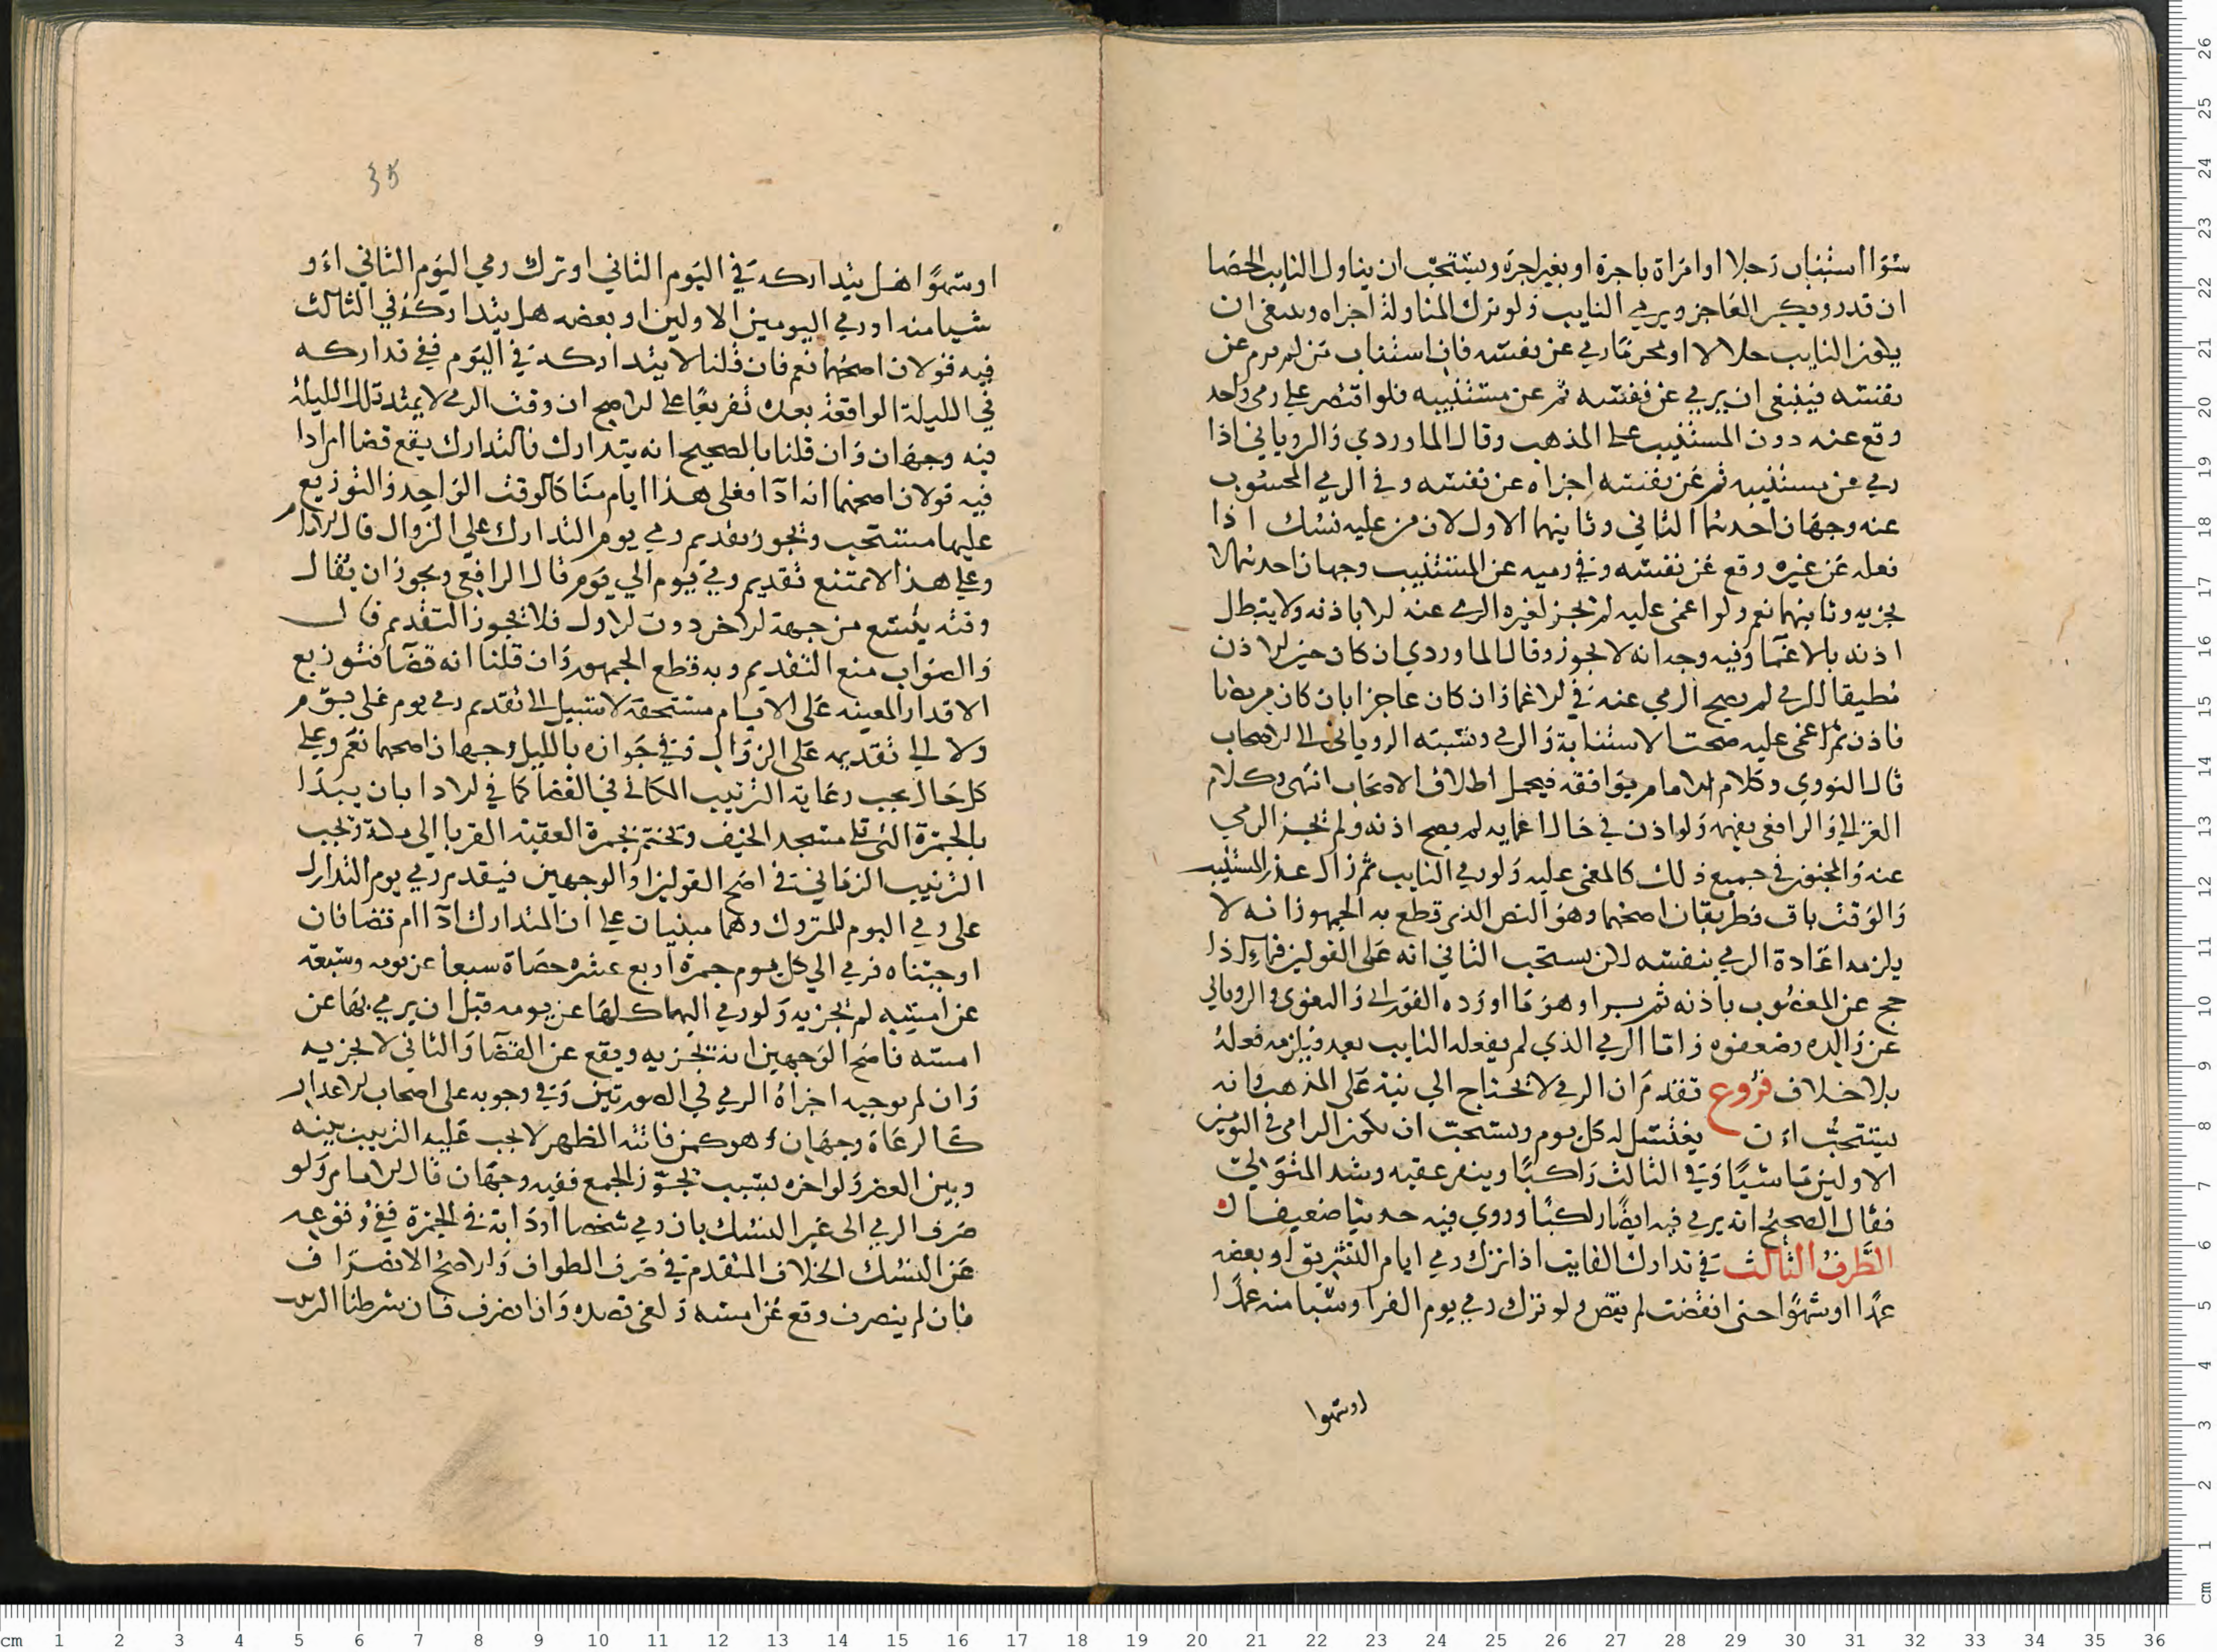 سوا استناب رجلا او امراة باجرة او بغير اجرة ويستحب ان يناول النايب الحصا
ان قدر ويكبر العاجز ويرمي النايب ولو ترك المناولة اجزاه وينبغي ان
يكون النايب حلالا او محرما رمي عن نفسه فان استناب من لم يرم عن
نفسه فينبغي ان يرمي عن نفسه ثم عن مستنيبه فلو اقتصر علي رمي واحد
وقع عنه دون المستنيب على المذهب وقال الماوردي والروياني اذا
رمي عن مستنيبه ثم عن نفسه اجزاه عن نفسه وفي الرمي المحسوب
عنه وجهان احدهما الثاني وثانيهما الاول لان من عليه نسك اذا
فعله عن غيره وقع عن نفسه وفي رميه عن المستنيب وجهان احدهما لا
يجزيه وثانيهما نعم ولو اغمي عليه لم يجز لغيره الرمي عنه الا باذنه ولا يبطل
اذنه بالاغما وفيه وجه انه لا يجوز وقال الماوردي ان كان حين الاذن
مطيقا للرمي لم يصح الرمي عنه في الاغما وان كان عاجزا بان كان مريضا
فاذن ثم اغمي عليه صحت الاستنابة والرمي ونسبه الروياني الى الاصحاب
قال النووي وكلام الامام يوافقه فيحمل اطلاق الاصحاب انتهى وكلام
الغزالي والرافعي يفهمه ولو اذن في حال اغمايه لم يصح اذنه ولم يجز الرمي
عنه والمجنون في جميع ذلك كالمغمى عليه ولو رمي النايب ثم زال عذر المستنيب
والوقت باق فطريقان اصحهما وهو النص الذي قطع به الجمهور انه لا
يلزمه اعادة الرمي بنفسه لكن يستحب الثاني انه على القولين فيما اذا
حج عن المعضوب باذنه ثم برا وهو ما اورده الفوراني والبغوي والروياني
عن والده وضعفوه واما الرمي الذي لم يفعله النايب بعد فيلزمه فعله
بلا خلاف فروع تقدم ان الرمي لا يحتاج الي نية على المذهب وانه
يستحب ان يغتسل له كل يوم ويستحب ان يكون الرامي في اليومين
الاولين ماشيا وفي الثالث راكبا وينفر عقبه وشذ المتولي
فقال الصحيح انه يرمي فيه ايضا راكبا وروي فيه حديثا ضعيفا
الطرف الثالث في تدارك الفايت اذا ترك رمي ايام التشريق او بعضه
عمدا او سهوا حتى انقضت لم يقض ولو ترك رمي يوم القر او شيا منه عمدا
اوسهوا
35
اوسهوا هل يتداركه في اليوم الثاني او ترك رمي اليوم الثاني او
شيا منه او رمي اليومين الاولين او بعضه هل يتداركه في الثالث
فيه قولان اصحهما نعم فان قلنا لا يتداركه في اليوم ففي تداركه
في الليلة الواقعة بعده تفريعا على الاصح ان وقت الرمي لا يمتد تلك الليلة
فيه وجهان وان قلنا بالصحيح انه يتدارك فالتدارك يقع قضا ام ادا
فيه قولان اصحهما انه ادا فعلى هذا ايام منا كالوقت الواحد والتوزيع
عليها مستحب ويجوز تقديم رمي يوم التدارك علي الزوال قال الامام
وعلي هذا لا يمتنع تقديم رمي يوم الي يوم قال الرافعي ويجوز ان يقال
وقته يتسع من جهة الاخر دون الاول فلا يجوز التقديم قال
والصواب منع التقديم وبه قطع الجمهور وان قلنا انه قضا فتوزيع
الاقدار المعينه على الايام مستحقة لا سبيل الى تقديم رمي يوم على يوم
ولا الي تقديمه على الزوال وفي جوازه بالليل وجهان اصحهما نعم وعلي
كل حال يجب رعاية الترتيب المكاني في القضا كما في الادا بان يبدا
بالجمرة التي تلي مسجد الخيف وتختم بجمرة العقبة القربا الى مكة وتجب
الترتيب الزماني في اصح القولين او الوجهين فيقدم رمي يوم التدارك
على رمي اليوم المتروك وهما مبنيان علي ان المتدارك ادا ام قضا فان
اوجبناه فرمي الي كل يوم جمرة اربع عشره حصاة سبعا عن يومه وسبعة
عن امسه لم يجزيه ولو رمي اليها كلها عن يومه قبل ان يرمي بها عن
امسه فاصح الوجهين انه يجزيه ويقع عن القضا والثاني لا يجزيه
وان لم نوجبه اجزاه الرمي في الصورتين وفي وجوبه على اصحاب الاعذار
كالرعاة وجهان وهو كمن فاتته الظهر لا يجب عليه الترتيب بينه
وبين العصر ولو اخره بسبب يجوز الجمع ففيه وجهان قال الامام ولو
صرف الرمي الى غير النسك بان رمي شخصا او دابة في الجمرة ففي وقوعه
عن النسك الخلاف المتقدم في صرف الطواف والاصح الانصراف
فان لم ينصرف وقع عن امسه ولغى قصده وان انصرف فان شرطنا